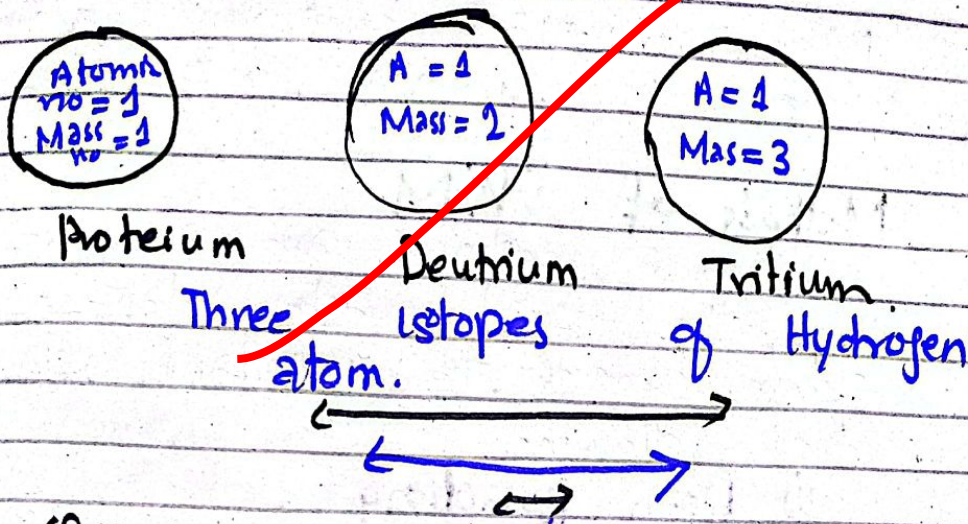 Atomic
no = 1
Mass
no = 1
A = 1
Mass = 2
A = 1
Mas = 3
Proteium
Deutrium
Tritium
Three isotopes of Hydrogen
atom.